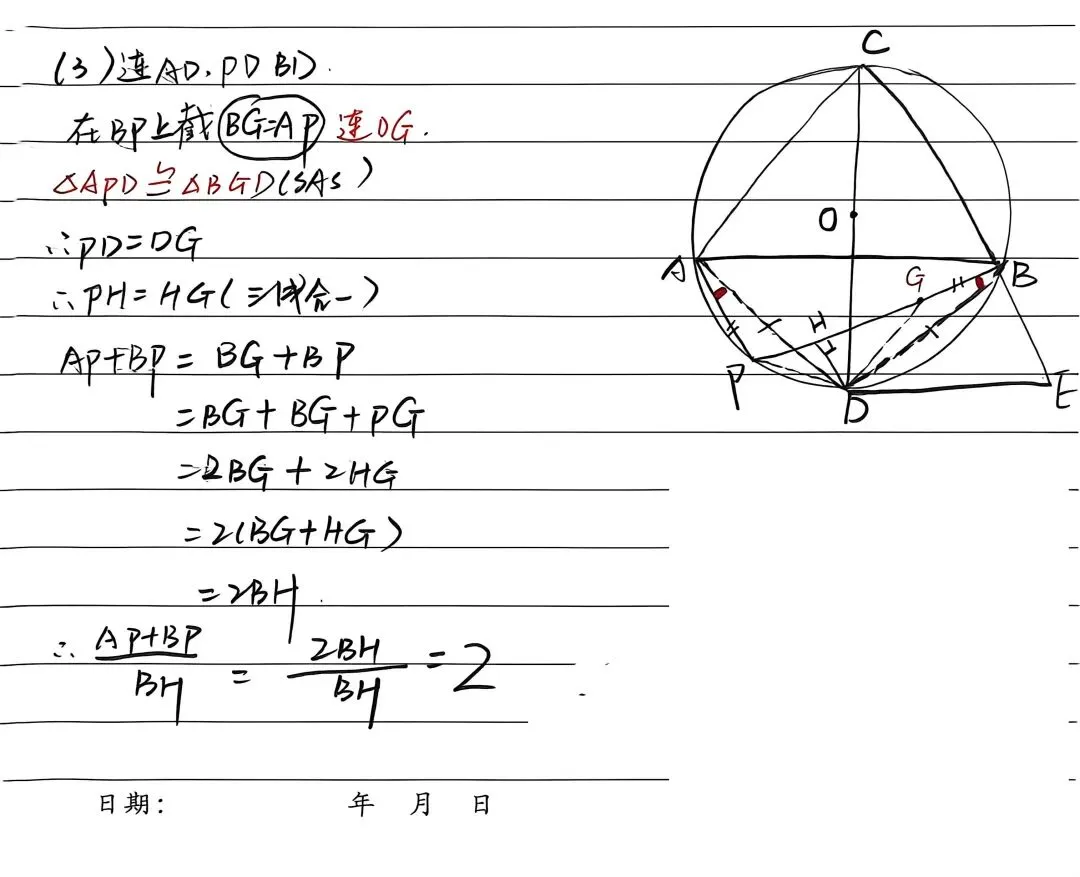 (3)连AD.PD BD.
在BP上截BG=AP 连DG.
△APD≌△BGD(SAS)
∴PD=DG
∴PH=HG(三线合一)
AP+BP = BG+BP
=BG+BG+PG
=2BG+2HG
=2(BG+HG)
=2BH.
∴ AP+BP/BH = 2BH/BH = 2
日期: 年 月 日
C
O
A
B
G
H
P
D
E